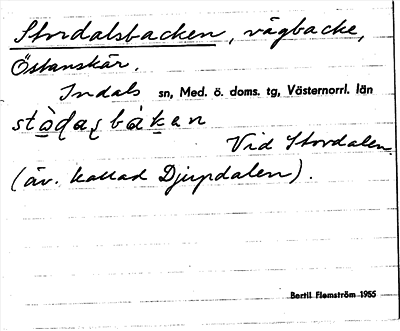 Stordalsbacken, vägbacke,
Östanskär.
Indals sn, Med. ö. doms. tg, Västernorrl. län
Vid Stordalen
(äv. kallad Djupdalen).
Bertil Flemström 1955